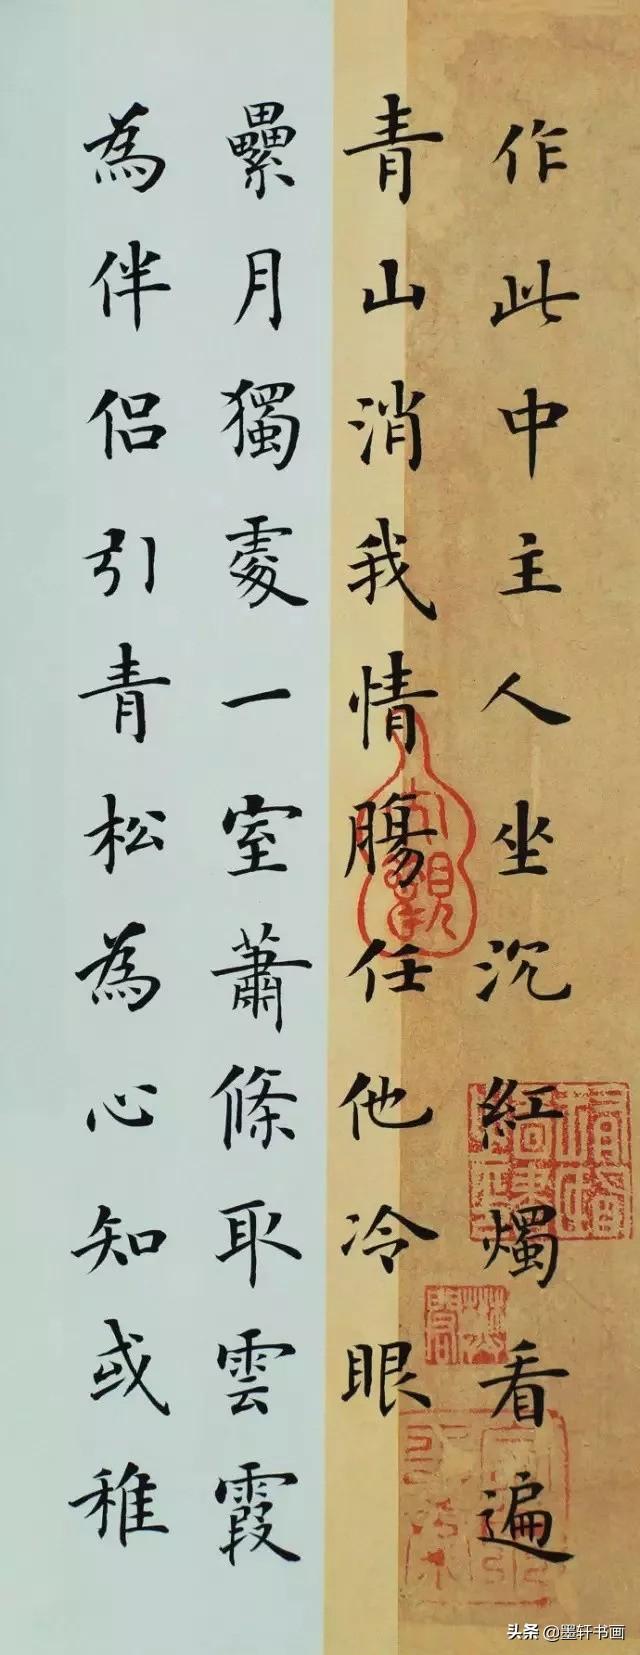 作此中主人坐沉紅燭看遍
青山消我情腸任他冷眼
纍月獨處一室蕭條取雲霞
為伴侣引青松為心知或稚
头条 @墨轩书画